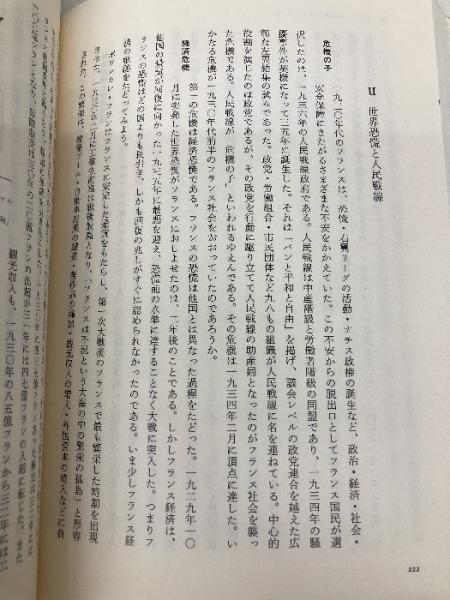 II 世界恐慌と人民戦線
危機の子
一九三〇年代のフランスは、恐慌・右翼リーグの活動・ナチス政権の誕生など、政治・経済・社会・
安全保障にきたがるさまざまな不安をかかえていた。この不安からの脱出口としてフランス国民が選
択したのは、一九三六年の人民戦線政府である。人民戦線は中産階級と労働者階級の同盟であり、一九三四年の騒
擾事件が契機になって三五年に誕生した。それは「パンと平和と自由」を掲げ、議会レベルの政党連合を越えた広
範な左翼結集の試みであった。政党・労働組合・市民団体など九八もの組織が人民戦線に名を連ねている。中心的
役割を演じたのは政党であるが、その政党を行動に駆り立てて人民戦線の助産婦となったのがフランス社会を襲っ
た危機である。人民戦線が「危機の子」といわれるゆえんである。その危機は一九三四年二月に頂点に達した。い
かなる危機が一九三〇年代前半のフランス社会をおおっていたのであろうか。
経済危機
第一の危機は経済恐慌である。フランスの恐慌は他国とは異なった過程をたどった。一九二九年一〇
月に突発した世界恐慌がフランスにおしよせたのは、一、二年後のことである。しかしフランス経済は、
他国の景気が回復に向かった一九三五年に最悪を迎え、恐慌前の水準に達することなく大戦に突入した。つまりフ
ランスの恐慌はどの国よりも長引き、しかも回復の兆しがすぐに認められなかったのである。いま少しフランス経
済の軌跡をたどってみよう。
ポワンカレ・フランはフランスに安定した通貨をもたらし、第一次大戦後のフランスで最も繁栄した時期を出現
させた。一九三〇年
「フランスは不況という大海の中の繁栄の孤島」と形容
された。この繁栄は、
観光収入の増大・外国資本の流入などに負
観光収入も、一九三〇年の八五億フランから三二年には三
222